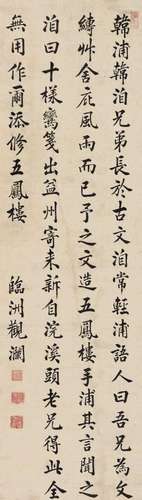 韓浦韓洎兄弟長於古文洎常輕浦語人曰吾兄為文
縛艸舍庇風雨而已予之文造五鳳樓手浦其言聞之
洎曰十樣鸞箋出益州寄來新自浣溪頭老兄得此全
無用作爾添修五鳳樓 臨洲觀瀾